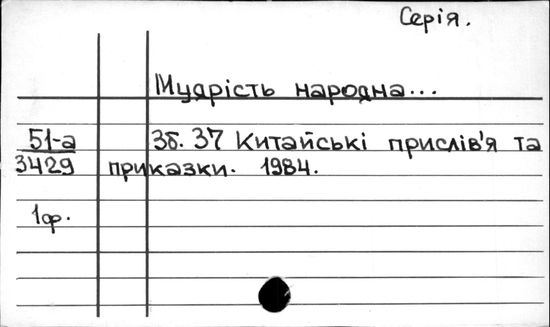 Серія.
Мудрість народна...
51-а Зб. 37 Китайські прислів'я та
3429 приказки. 1984.
1ф.